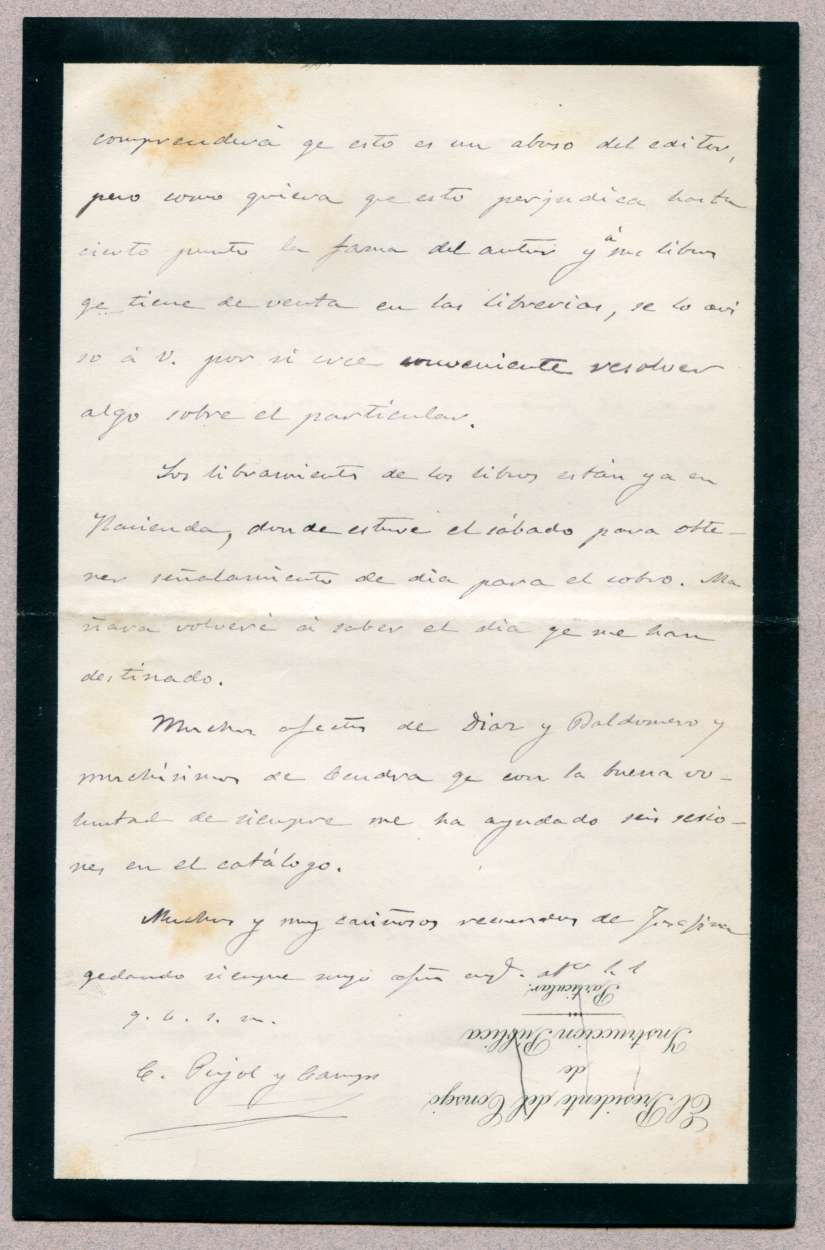 comprenderá qe esto es un abuso del editor,
pero como quiera qe esto perjudica hasta
cierto punto la fama del autor y á los libros
qe tiene de venta en las librerias, se lo avi
so á V. por si cree conveniente resolver
algo sobre el particular.
Los libramientos de los libros están ya en
Hacienda, donde estuve el sábado para obte-
ner señalamiento de dia para el cobro. Ma
ñana volveré á saber el dia qe me han
destinado.
Muchos afectos de Diaz y Baldomero y
muchísimos de Cendra qe con la buena vo-
luntad de siempre me ha ayudado seis sesio-
nes en el catálogo.
Muchos y muy cariñosos recuerdos de Josefina
qedando siempre suyo afmo
q. b. s. m.
C. Pujol y Camps
El Presidente del Consejo
de
Instrucción Pública
Particular.